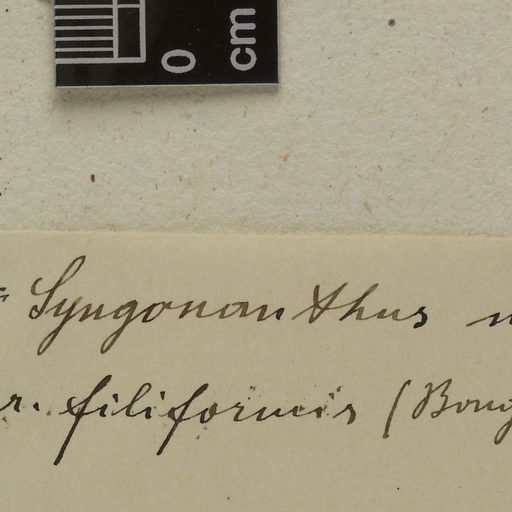 0 cm
Syngonanthus
r. filiformis (Bong